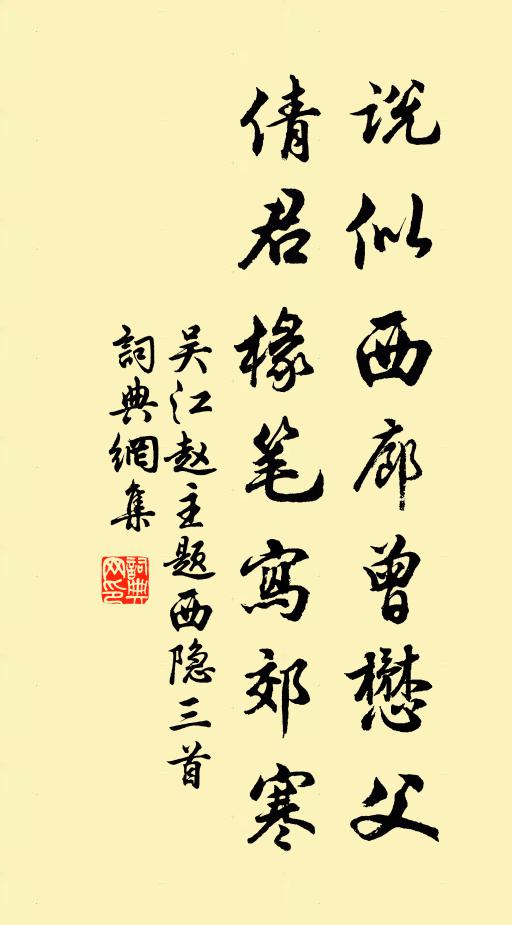 说似西廊曾懋父
倩君椽笔寫郊寒
吴江赵主题西隐三首
詞典網集
詞典
网印